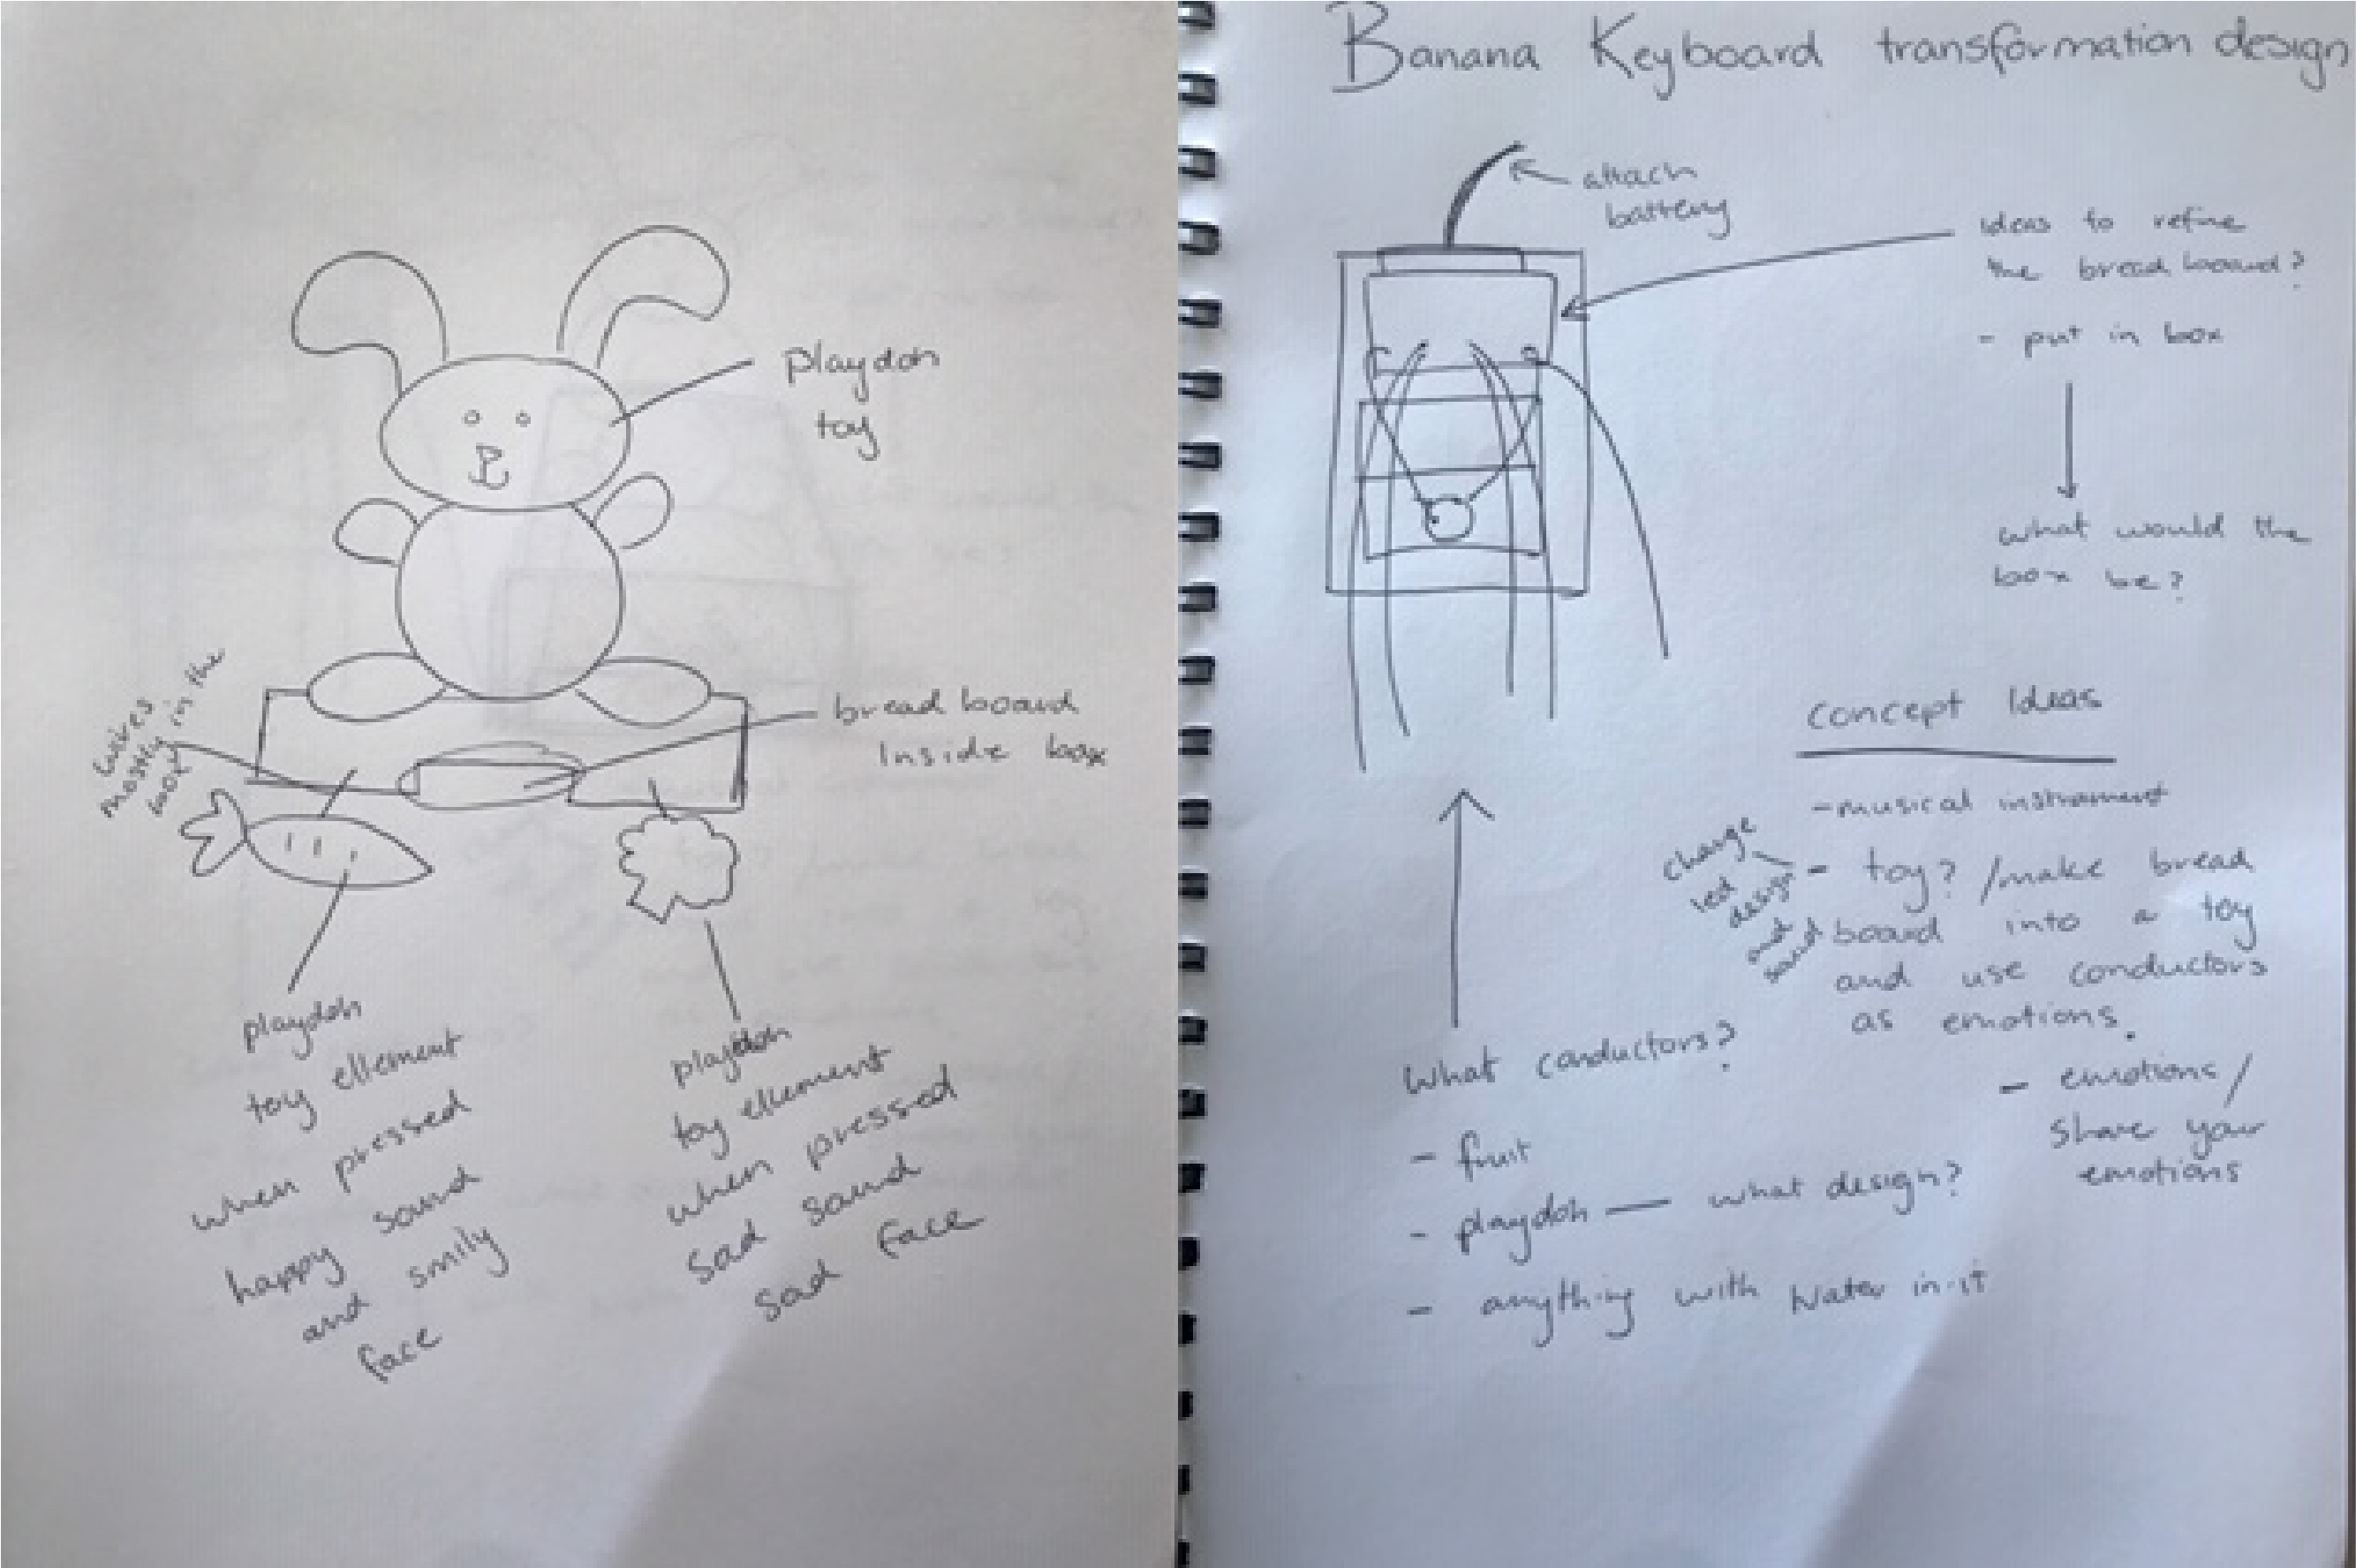 playdoh
toy
bread board
Inside box
wires
mostly in the
box
playdoh
toy ellement
when pressed
happy sound
and smily
face
playdoh
toy ellement
when pressed
sad sound
sad face
Banana Keyboard transformation design
attach
battery
Ideas to refine
the bread board?
- put in box
what would the
box be?
Concept Ideas
- musical instrument
change
led
design
and
sound
- toy? /make bread
board into a toy
and use conductors
as emotions.
- emotions/
share your
emotions
What conductors?
- fruit
- playdoh — what design?
- anything with water in it